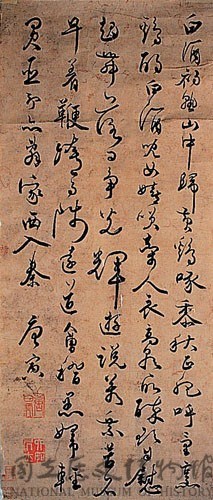 白酒初熟山中歸黃雞啄黍秋正肥呼童烹
雞酌白酒兒女嬉笑牽人衣高歌取醉欲自慰
起舞落日爭光輝遊說萬乘苦不
早著鞭跨馬涉遠道會稽愚婦輕
買臣余亦辭家西入秦 唐寅
國立歷史博物館
NATIONAL MUSEUM OF HISTORY